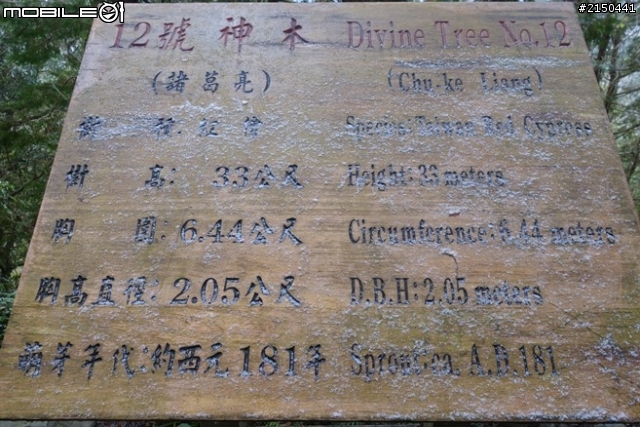 MOBILE01
#2150441
12號 神 木 Divine Tree No.12
(諸葛亮) (Chu-ke Liang)
樹 種: 紅檜 Species: Taiwan Red Cypress
樹 高: 33公尺 Height: 33 meters
胸 圍: 6.44公尺 Circumference: 6.44 meters
胸高直徑: 2.05公尺 D.B.H: 2.05 meters
萌芽年代:約西元181年 Sprout:ca. A.D.181